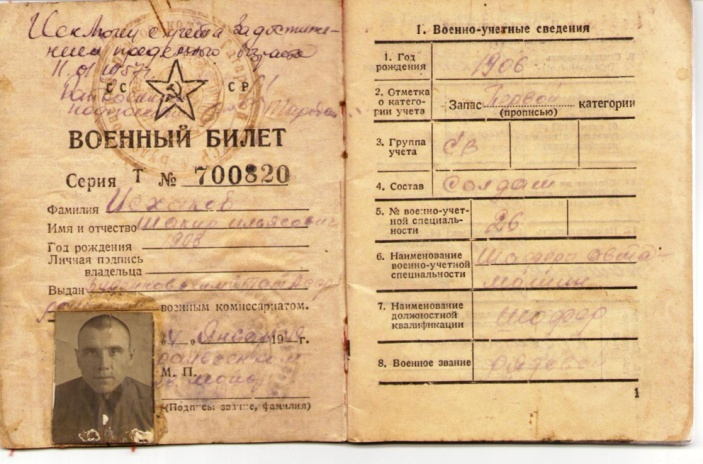 Исключен с учета за достиже-
нием предельного возраста
СС СР
ВОЕННЫЙ БИЛЕТ
Серия Т № 700820
Фамилия Исхаков
Имя и отчество Шакир Ильясович
Год рождения 1906
Личная подпись
владельца
Выдан
военным комиссариатом.
Января 19 г.
М. П.
(Подпись, звание, фамилия)
I. Военно-учетные сведения
1. Год
рождения 1906
2. Отметка
о катего-
рии учета Запас первой категории
(прописью)
3. Группа
учета СВ
4. Состав солдат
5. № военно-учет-
ной специаль-
ности 26
6. Наименование
военно-учетной
специальности Шофер авто-
машин
7. Наименование
должностной
квалификации шофер
8. Военное звание рядовой
1